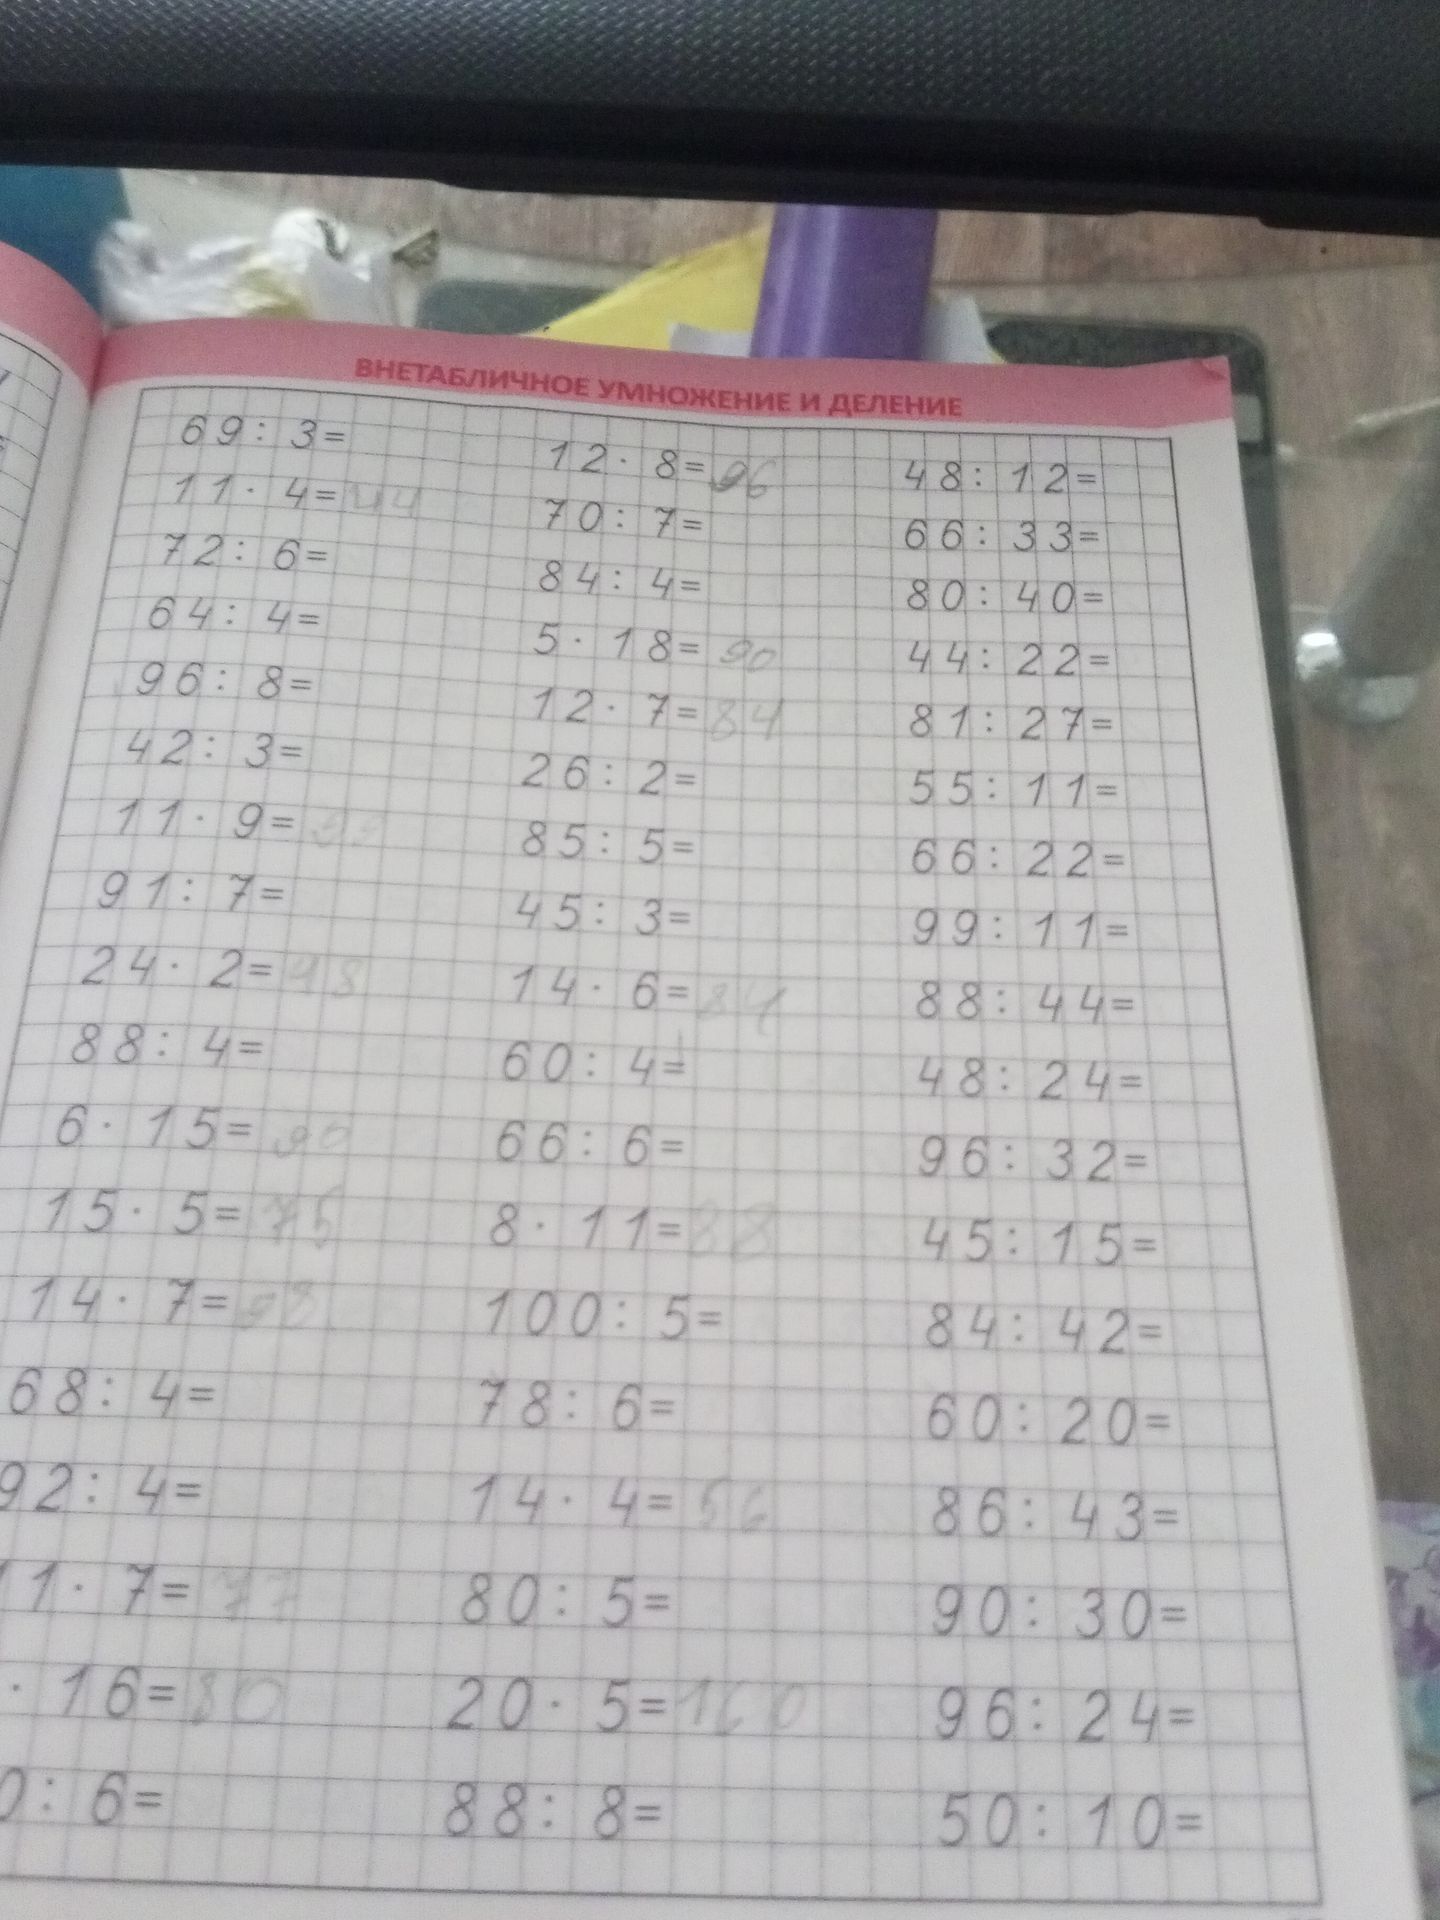 ВНЕТАБЛИЧНОЕ УМНОЖЕНИЕ И ДЕЛЕНИЕ
69 : 3 =
11 · 4 = 44
72 : 6 =
64 : 4 =
96 : 8 =
42 : 3 =
11 · 9 = 99
91 : 7 =
24 · 2 = 48
88 : 4 =
6 · 15 = 90
15 · 5 = 75
14 · 7 = 98
68 : 4 =
92 : 4 =
11 · 7 = 77
· 16 = 80
0 : 6 =
12 · 8 = 96
70 : 7 =
84 : 4 =
5 · 18 = 90
12 · 7 = 84
26 : 2 =
85 : 5 =
45 : 3 =
14 · 6 = 84
60 : 4 =
66 : 6 =
8 · 11 = 88
100 : 5 =
78 : 6 =
14 · 4 = 56
80 : 5 =
20 · 5 = 100
88 : 8 =
48 : 12 =
66 : 33 =
80 : 40 =
44 : 22 =
81 : 27 =
55 : 11 =
66 : 22 =
99 : 11 =
88 : 44 =
48 : 24 =
96 : 32 =
45 : 15 =
84 : 42 =
60 : 20 =
86 : 43 =
90 : 30 =
96 : 24 =
50 : 10 =